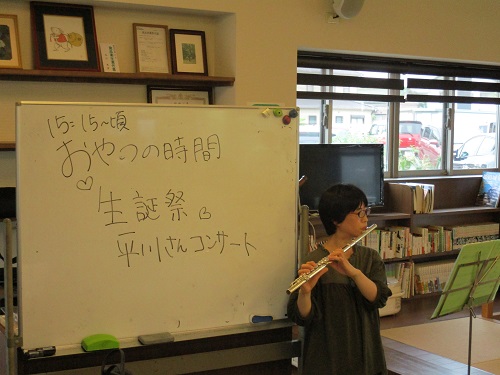 15:15～頃
おやつの時間
♡生誕祭&
平川さんコンサート